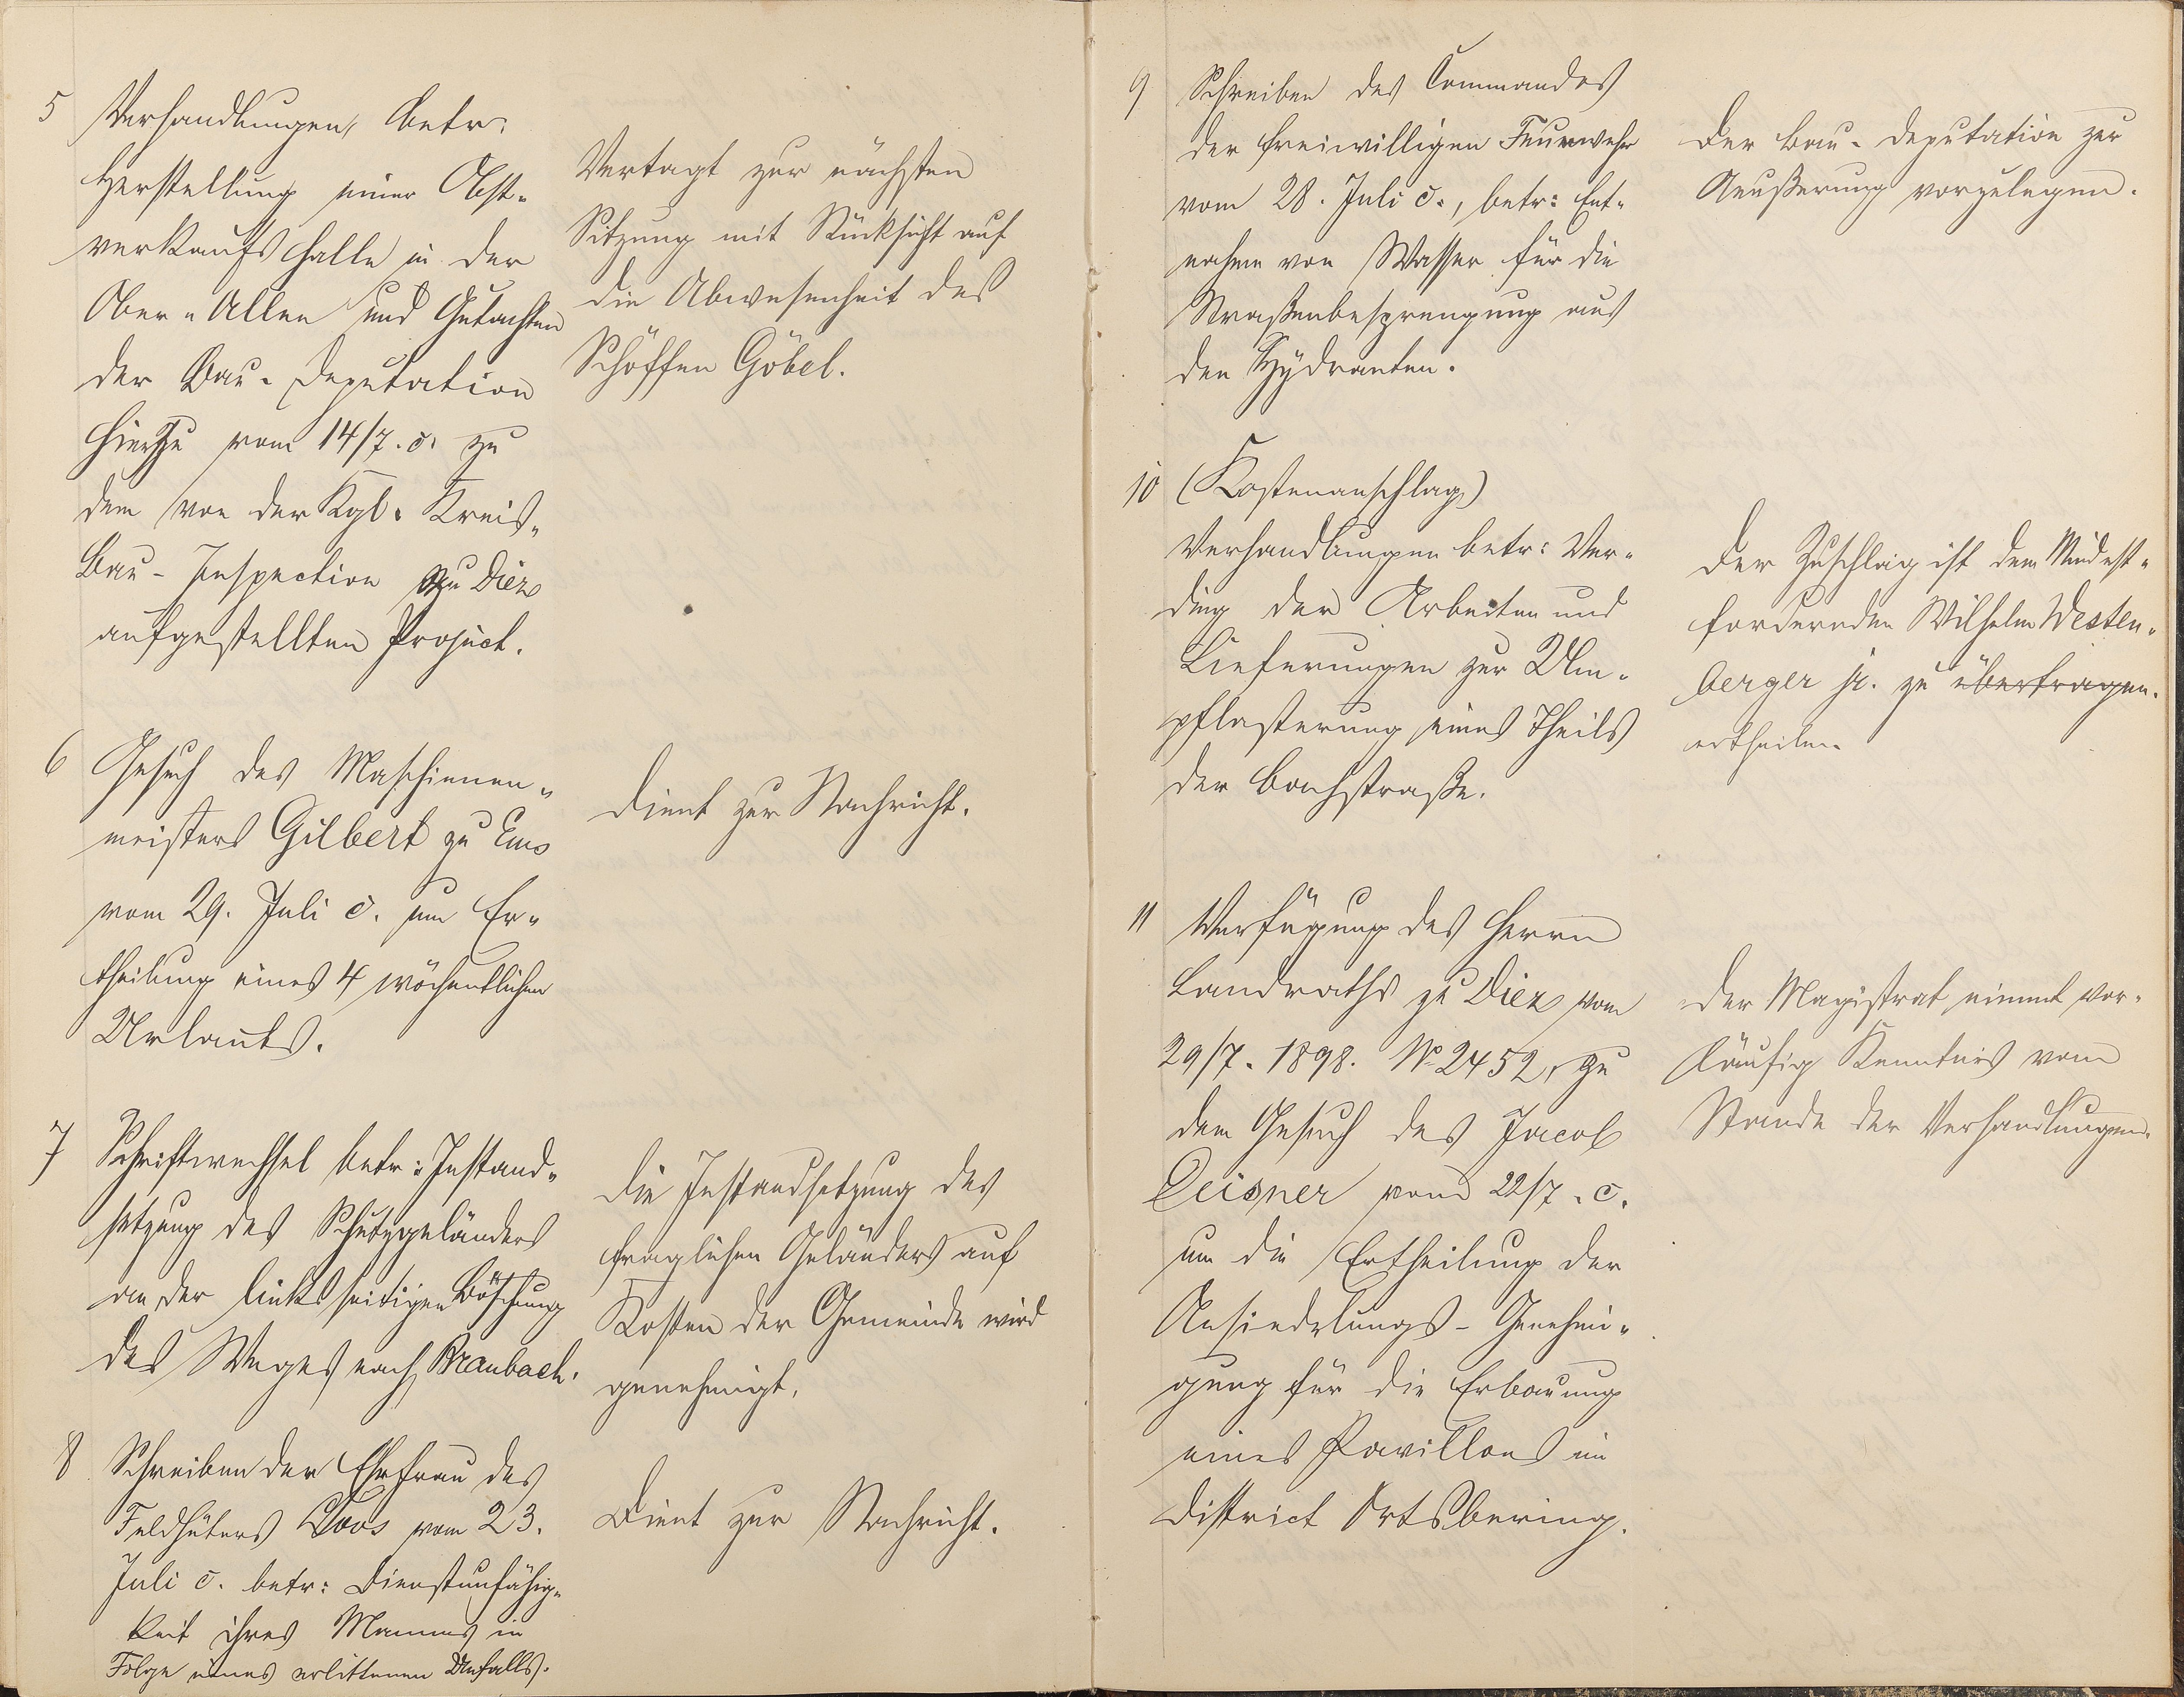 5 Verhandlungen, betr:
Herstellung einer Obst-
verkaufshalle in der
Ober-Allee und Gutachten
der Bau-Deputation
hierzu vom 14/7. c. zu
dem von der Kgl. Kreis-
Bau-Inspection zu Diez
aufgestellten Project.
Vertagt zur nächsten
Sitzung mit Rücksicht auf
die Abwesenheit des
Schöffen Göbel.
6 Gesuch des Maschinen-
meisters Gilbert zu Ems
vom 29. Juli c. um Er-
theilung eines 4 wöchentlichen
Urlaubs.
Dient zur Nachricht.
7 Schriftwechsel betr: Instand-
setzung des Schutzgeländers
an der linksseitigen Böschung
des Weges nach Braubach.
Die Instandsetzung des
fraglichen Geländers auf
Kosten der Gemeinde wird
genehmigt.
8 Schreiben der Ehefrau des
Feldhüters Loos vom 23.
Juli c. betr: Dienstunfähig-
keit ihres Mannes in
Folge eines erlittenen Unfalls.
Dient zur Nachricht.
9 Schreiben des Commandos
der freiwilligen Feuerwehr
vom 28. Juli c., betr: Ent-
nahme von Wasser für die
Straßenbesprengung aus
den Hydranten.
Der Bau-Deputation zur
Aeußerung vorzulegen.
10 (Kostenanschlag)
Verhandlungen betr: Ver-
ding der Arbeiten und
Lieferungen zur Um-
pflasterung eines Theils
der Bachstraße.
Der Zuschlag ist dem Mindest-
fordernden Wilhelm Westen-
berger jr. zu übertragen.
ertheilen.
11 Verfügung des Herrn
Landraths zu Diez vom
29/7. 1898. No 2452, zu
dem Gesuch des Jacob
Deisner vom 22/7. c.
um die Ertheilung der
Ansiedelungs-Genehmi-
gung für die Erbauung
eines Pavillons im
District Ortsbering.
Der Magistrat nimmt vor-
läufig Kenntnis vom
Stande der Verhandlungen.